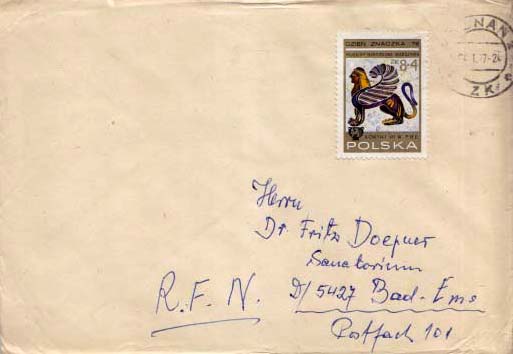 DZIEŃ ZNACZKA '76
8+4
POLSKA
Herrn
Dr. Fritz Doepner
Sanatorium
R.F.N. D/5427 Bad-Ems
Postfach 101